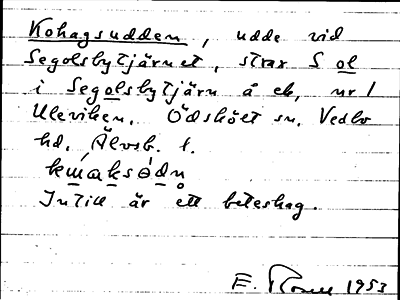 Kohagsudden, udde vid
Segolsbytjärnet, strax S ol
i Segolsbytjärn å ek, nr 1
Uleviken. Ödskölt sn. Vedbo
hd, Älvsb. l.
Intill är ett beteshag.
E. 1953